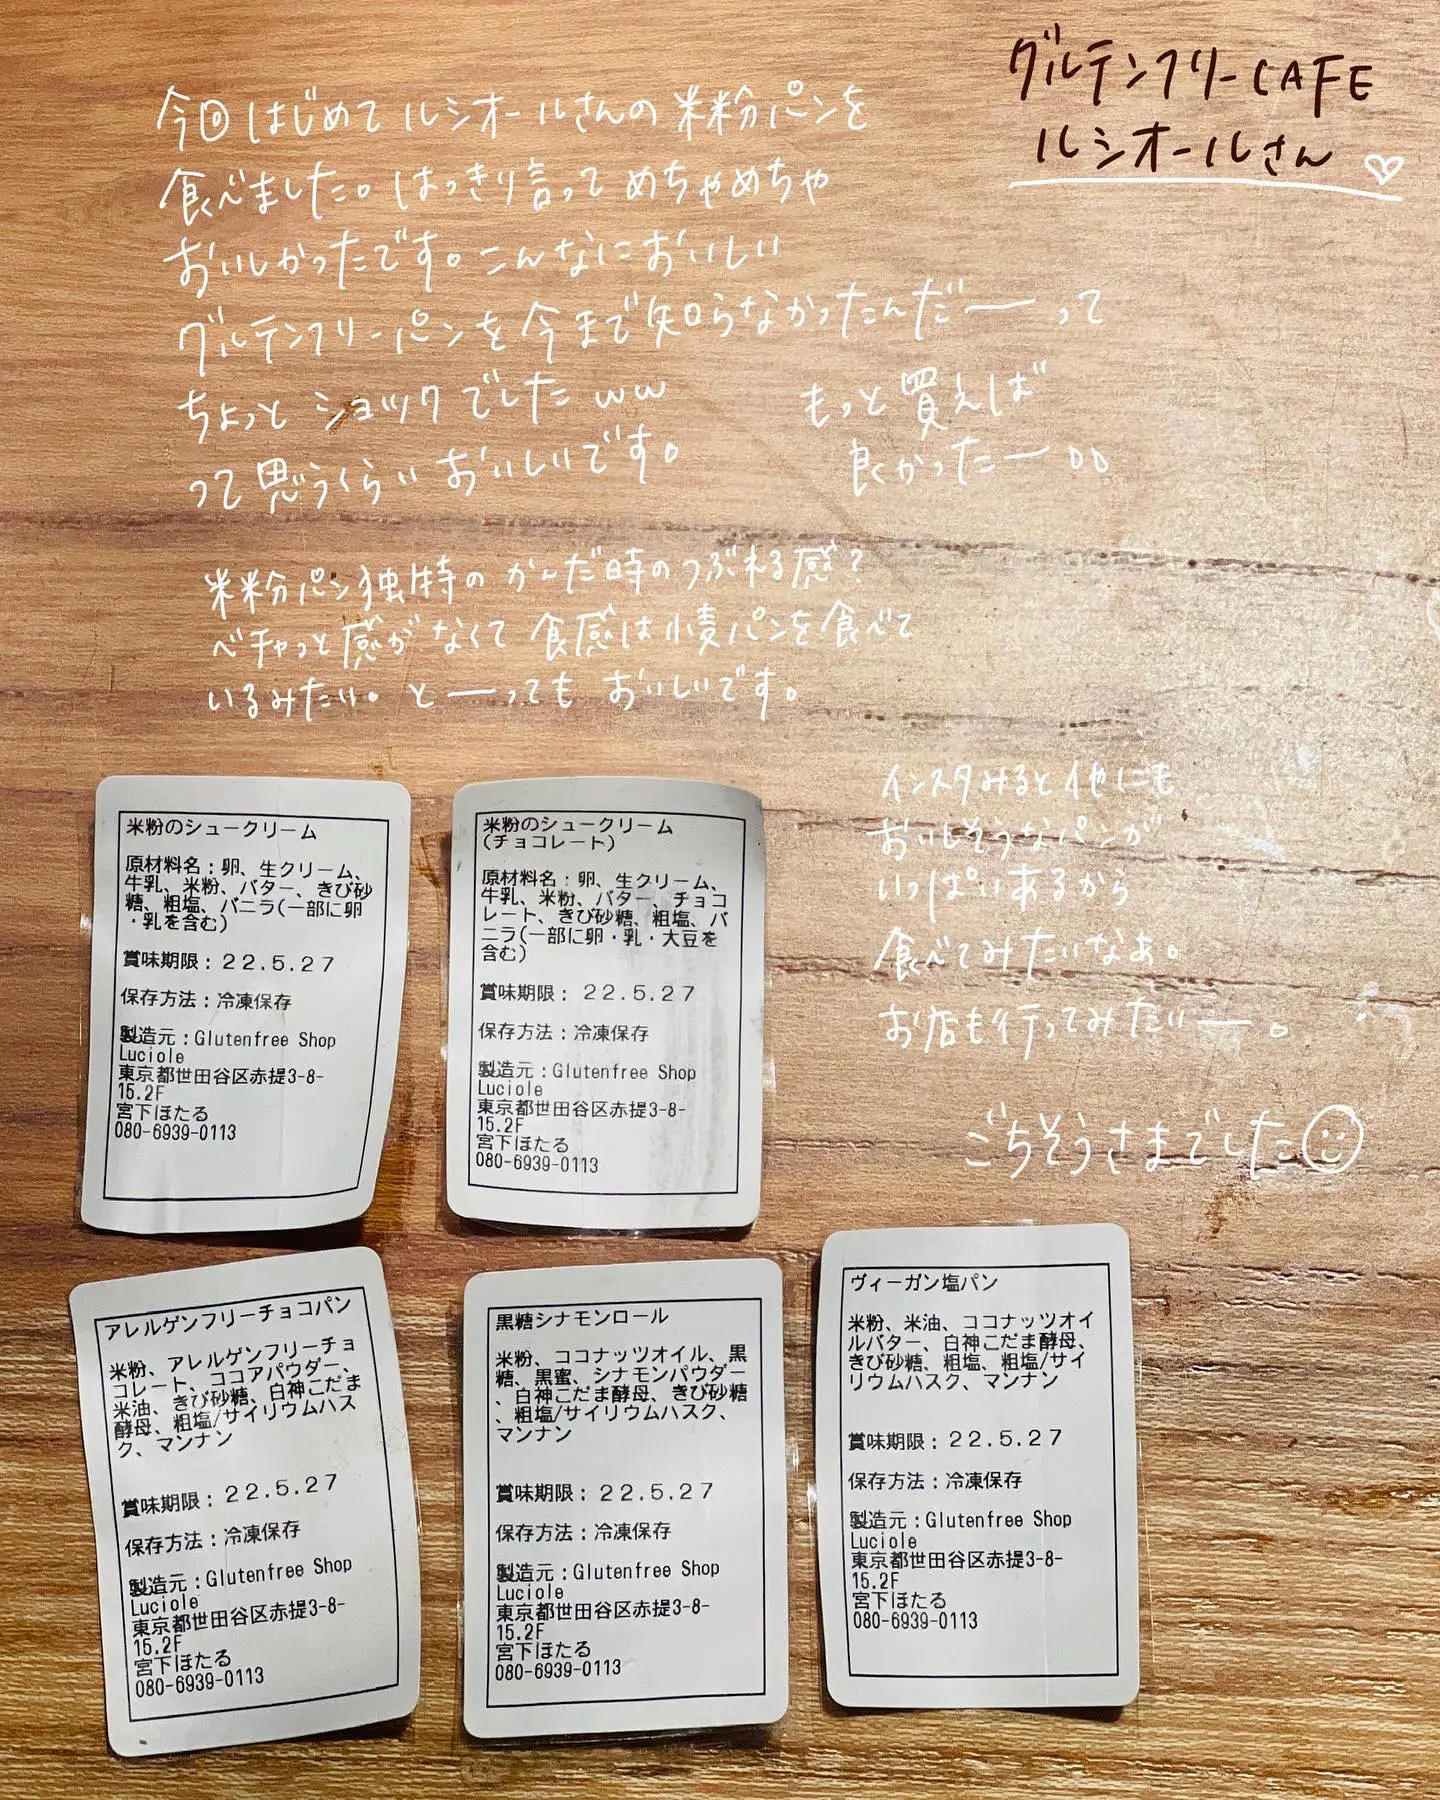 グルテンフリーCAFE
ルシオールさん
今回はじめてルシオールさんの米粉パンを
食べました。はっきり言ってめちゃめちゃ
おいしかったです。こんなにおいしい
グルテンフリーパンを今まで知らなかったんだーって
ちょっとショックでしたww
って思うくらいおいしいです。
もっと買えば
良かったー
米粉パン独特のかんだ時のつぶれる感?
ベチャっと感がなくて食感は小麦パンを食べて
いるみたい。とーってもおいしいです。
インスタみると他にも
おいしそうなパンが
いっぱいあるから
食べてみたいなぁ。
お店も行ってみたいー。
ごちそうさまでした
米粉のシュークリーム
原材料名:卵、生クリーム、
牛乳、米粉、バター、きび砂
糖、粗塩、バニラ(一部に卵
・乳を含む)
賞味期限: 22.5.27
保存方法:冷凍保存
製造元:Glutenfree Shop
Luciole
東京都世田谷区赤提3-8-
15.2F
宮下ほたる
080-6939-0113
米粉のシュークリーム
(チョコレート)
原材料名:卵、生クリーム、
牛乳、米粉、バター、チョコ
レート、きび砂糖、粗塩、バ
ニラ(一部に卵・乳・大豆を
含む)
賞味期限: 22.5.27
保存方法:冷凍保存
製造元:Glutenfree Shop
Luciole
東京都世田谷区赤提3-8-
15.2F
宮下ほたる
080-6939-0113
アレルゲンフリーチョコパン
米粉、アレルゲンフリーチョ
コレート、ココアパウダー、
米油、きび砂糖、白神こだま
酵母、粗塩/サイリウムハス
ク、マンナン
賞味期限: 22.5.27
保存方法:冷凍保存
製造元:Glutenfree Shop
Luciole
東京都世田谷区赤提3-8-
15.2F
宮下ほたる
080-6939-0113
黒糖シナモンロール
米粉、ココナッツオイル、黒
糖、黒蜜、シナモンパウダー
、白神こだま酵母、きび砂糖
、粗塩/サイリウムハスク、
マンナン
賞味期限: 22.5.27
保存方法:冷凍保存
製造元:Glutenfree Shop
Luciole
東京都世田谷区赤提3-8-
15.2F
宮下ほたる
080-6939-0113
ヴィーガン塩パン
米粉、米油、ココナッツオイ
ルバター、白神こだま酵母、
きび砂糖、粗塩、粗塩/サイ
リウムハスク、マンナン
賞味期限: 22.5.27
保存方法:冷凍保存
製造元:Glutenfree Shop
Luciole
東京都世田谷区赤提3-8-
15.2F
宮下ほたる
080-6939-0113